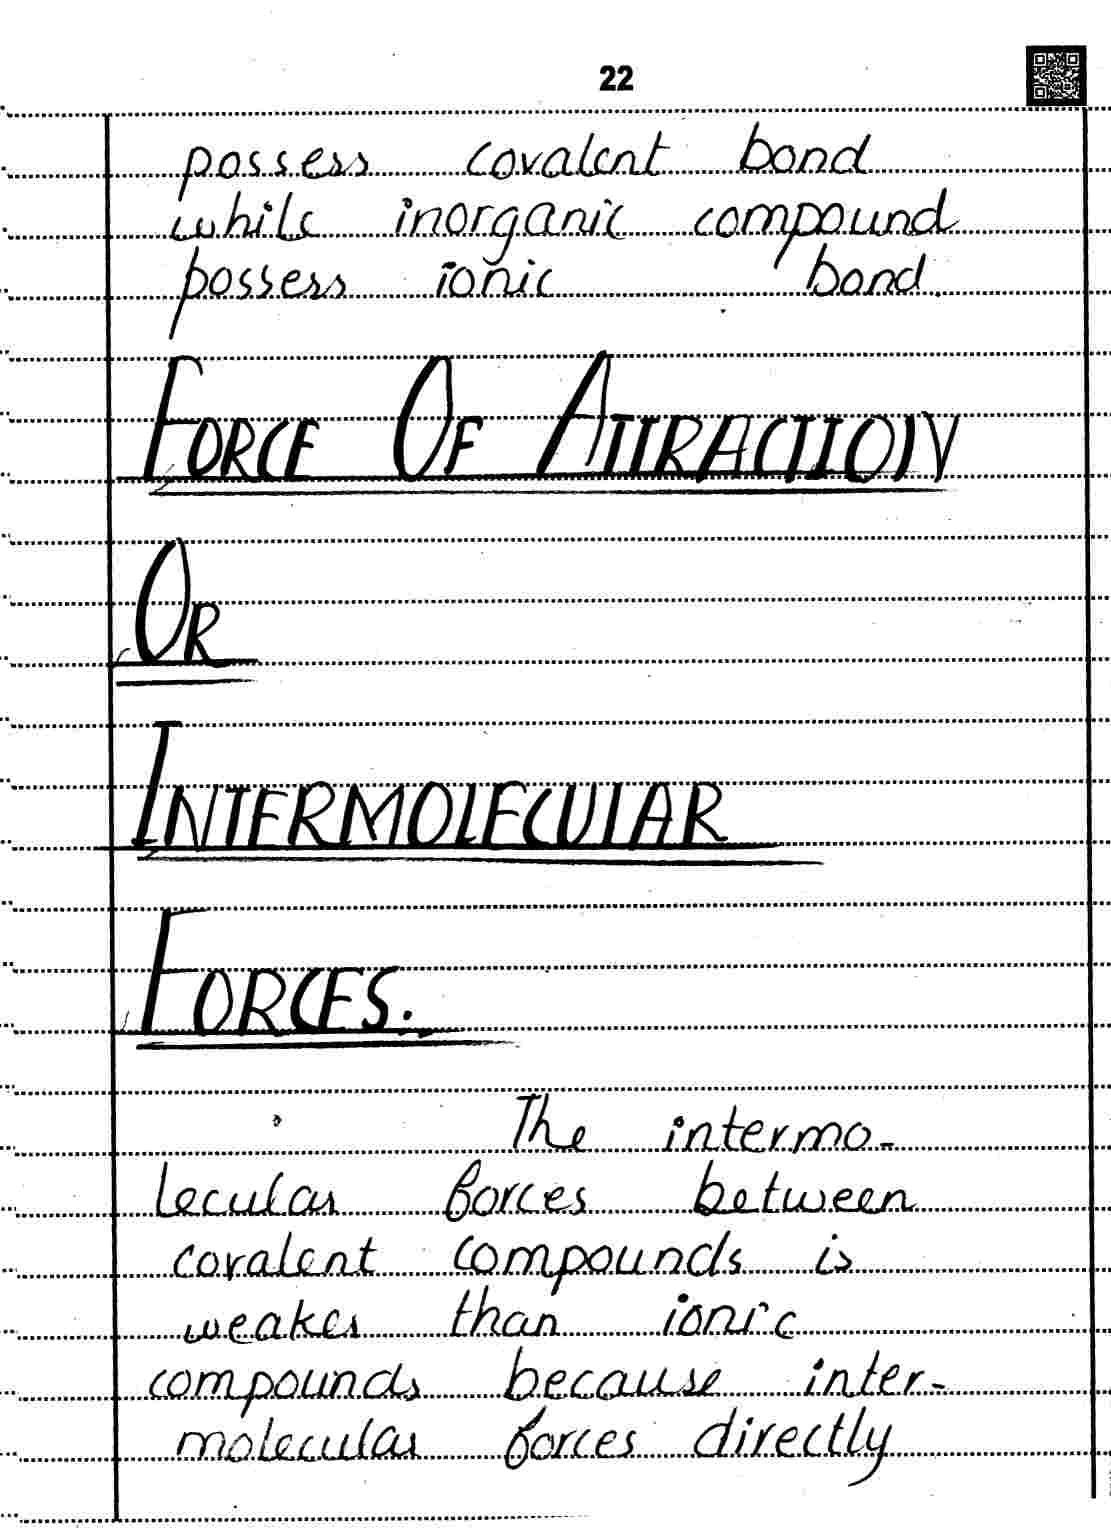 22
possess covalent bond
while inorganic compound
possess ionic bond.
FORCE OF ATTRACTION
OR
INTERMOLECULAR
FORCES.
The intermo-
lecular forces between
covalent compounds is
weaker than ionic
compounds because inter-
molecular forces directly